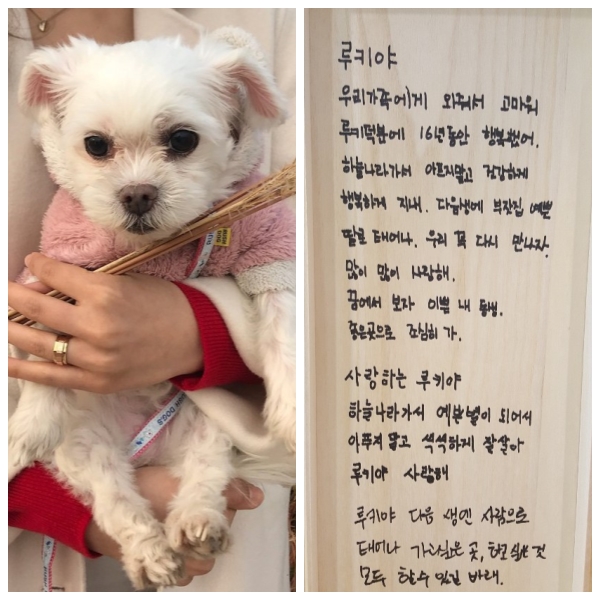 루키야
우리가족에게 와줘서 고마워
루키덕분에 16년동안 행복했어.
하늘나라가서 아프지말고 건강하게
행복하게 지내. 다음생에 부잣집 예쁜
딸로 태어나. 우리 꼭 다시 만나자.
많이 많이 사랑해.
꿈에서 보자 이쁜 내 동생.
좋은곳으로 조심히 가.
사랑하는 루키야
하늘나라가서 예쁜별이 되어서
아푸지 말고 씩씩하게 잘살아
루키야 사랑해
루키야 다음 생엔 사람으로
태어나 가고싶은 곳, 하고 싶은 것
모두 할 수 있길 바래.
DOGS